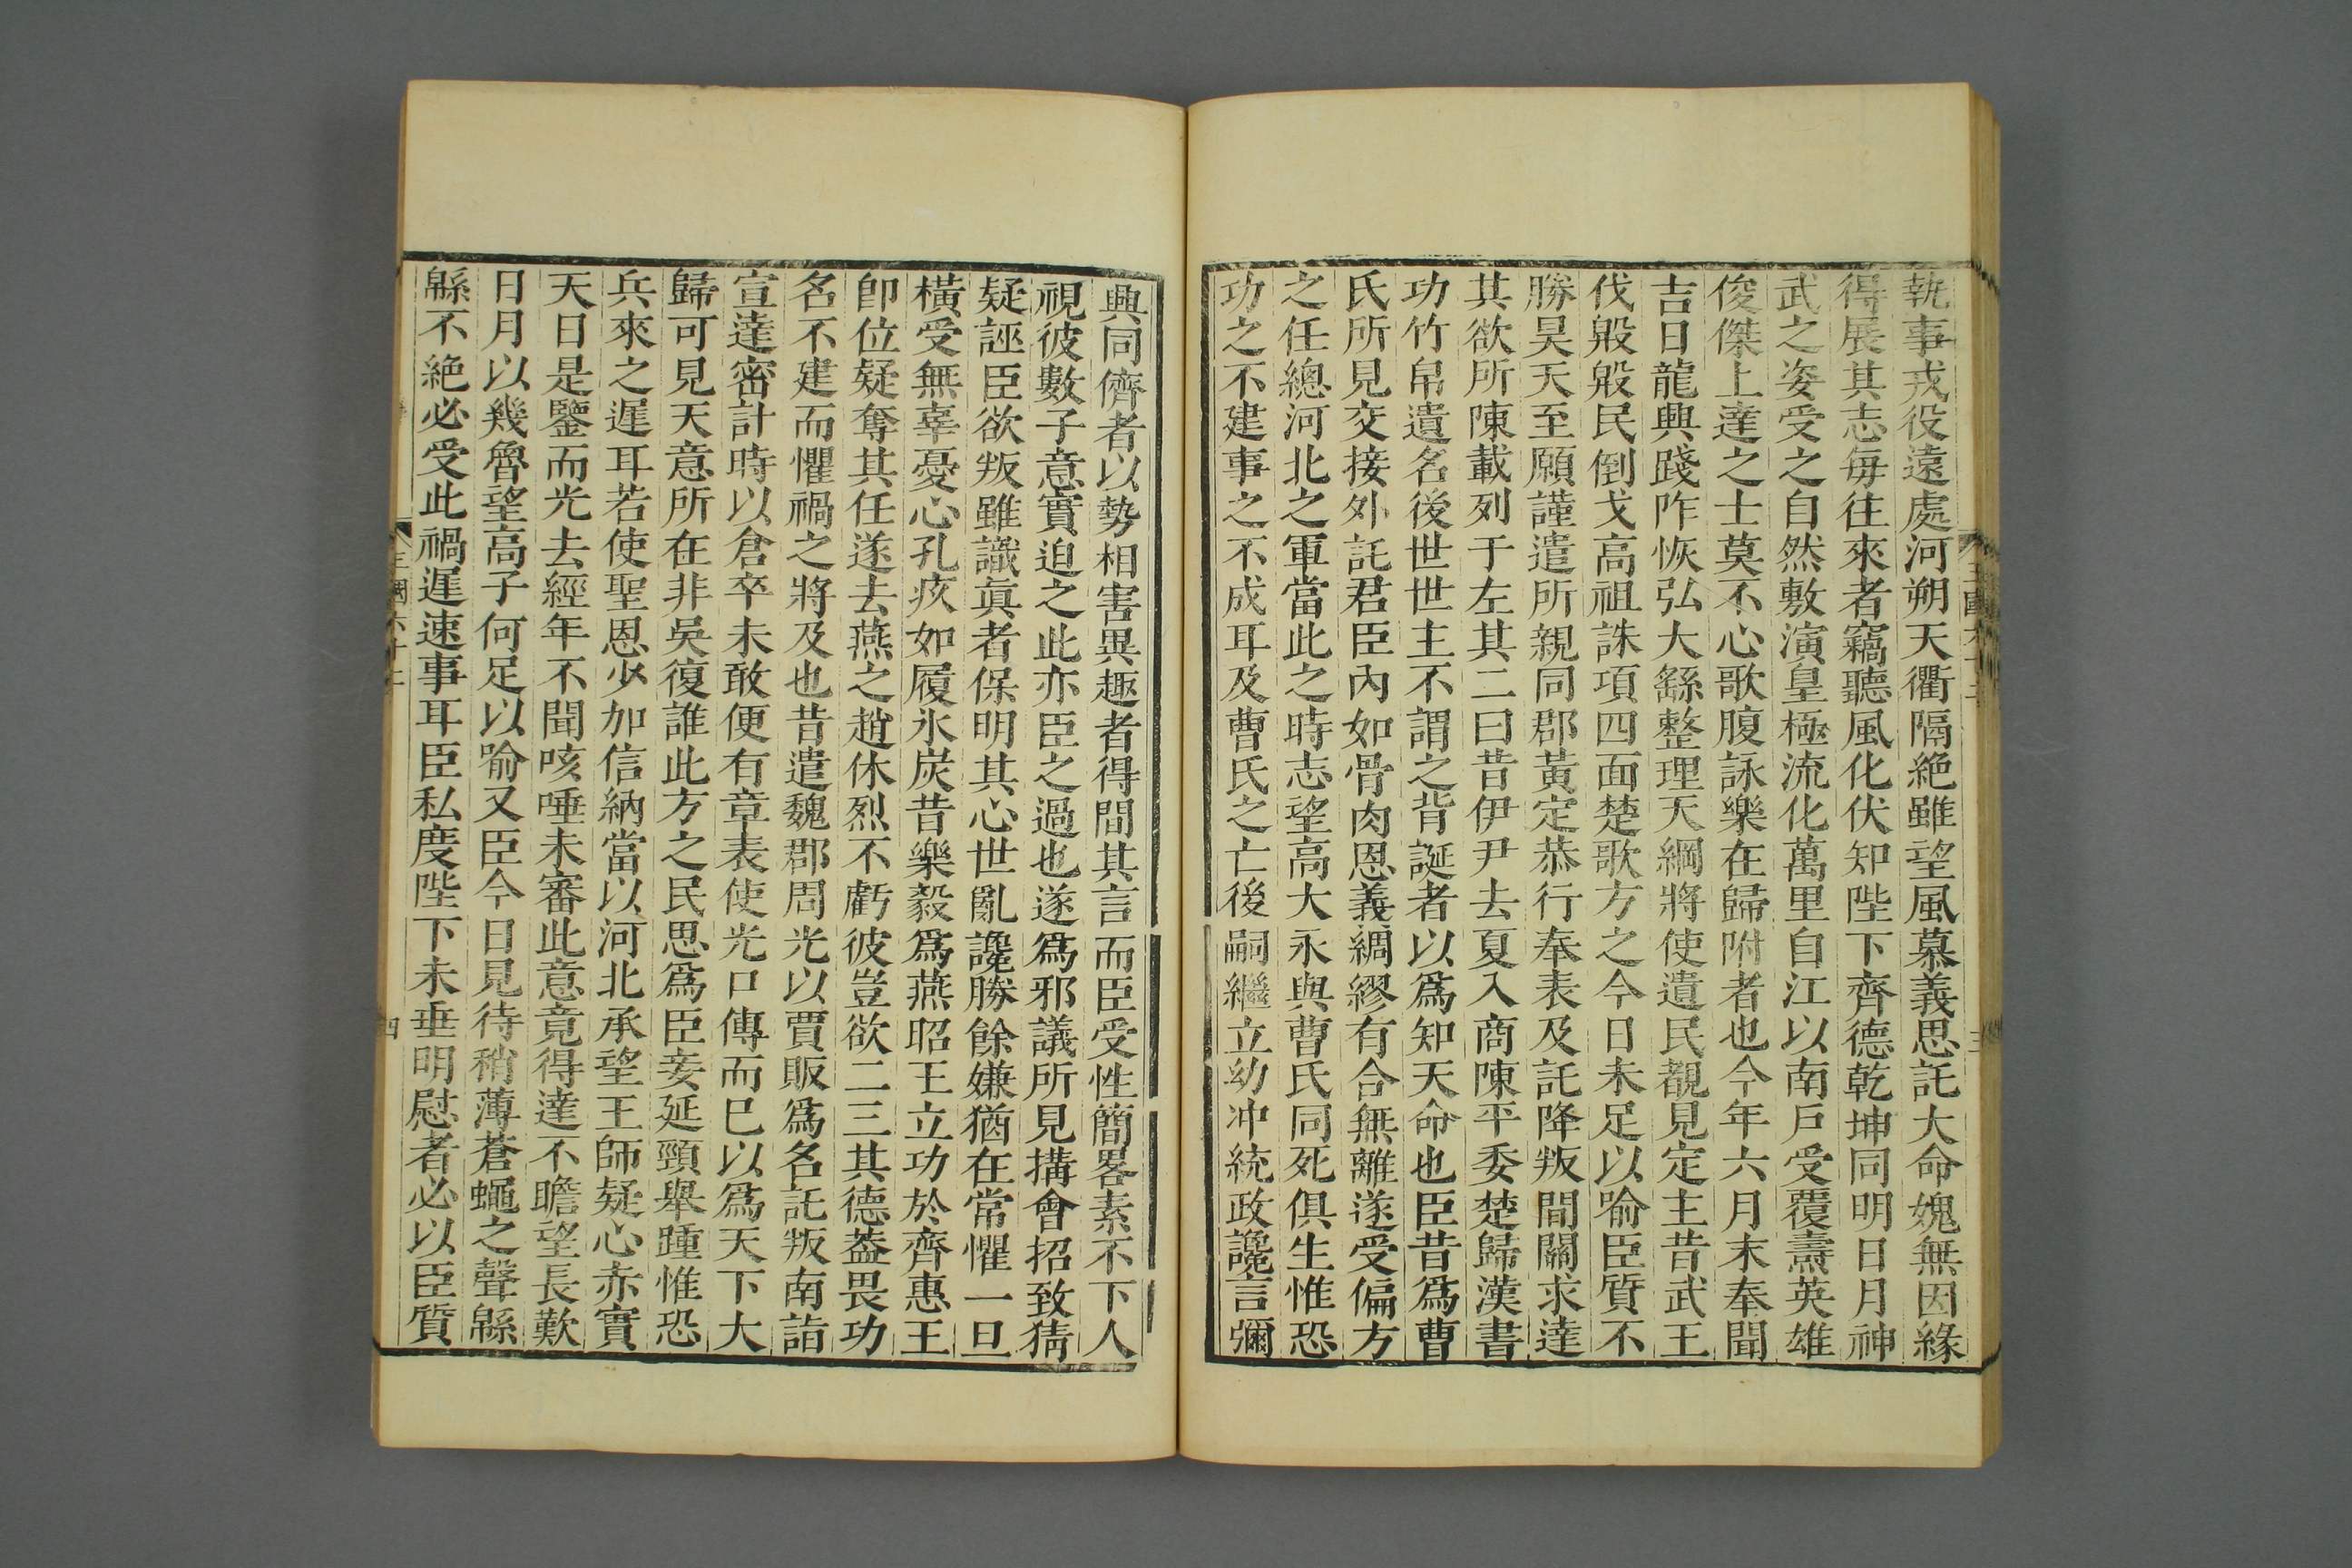 執事戎役遠處河朔天衢隔絶雖望風慕義思託大命媿無因緣
得展其志每往來者竊聽風化伏知陛下齊德乾坤同明日月神
武之姿受之自然敷演皇極流化萬里自江以南戶受覆燾英雄
俊傑上達之士莫不心歌腹詠樂在歸附者也今年六月末奉聞
吉日龍興踐阼恢弘大繇整理天綱將使遺民覩見定主昔武王
伐殷殷民倒戈高祖誅項四面楚歌方之今日未足以喻臣質不
勝昊天至願謹遣所親同郡黃定恭行奉表及託降叛間關求達
其欲所陳載列于左其二曰昔伊尹去夏入商陳平委楚歸漢書
功竹帛遺名後世世主不謂之背誕者以爲知天命也臣昔爲曹
氏所見交接外託君臣內如骨肉恩義綢繆有合無離遂受偏方
之任總河北之軍當此之時志望高大永與曹氏同死俱生惟恐
功之不建事之不成耳及曹氏之亡後嗣繼立幼冲統政讒言彌
興同儕者以勢相害異趣者得間其言而臣受性簡畧素不下人
視彼數子意實迫之此亦臣之過也遂爲邪議所見搆會招致猜
疑誣臣欲叛雖識眞者保明其心世亂讒勝餘嫌猶在常懼一旦
橫受無辜憂心孔疚如履氷炭昔樂毅爲燕昭王立功於齊惠王
卽位疑奪其任遂去燕之趙休烈不虧彼豈欲二三其德葢畏功
名不建而懼禍之將及也昔遣魏郡周光以賈販爲名託叛南詣
宣達密計時以倉卒未敢便有章表使光口傳而已以爲天下大
歸可見天意所在非吳復誰此方之民思爲臣妾延頸舉踵惟恐
兵來之遲耳若使聖恩少加信納當以河北承望王師疑心赤實
天日是鑒而光去經年不聞咳唾未審此意竟得達不瞻望長歎
日月以幾魯望高子何足以喻又臣今日見待稍薄蒼蠅之聲緜
緜不絶必受此禍遲速事耳臣私度陛下未垂明慰者必以臣質
三國六十二
四